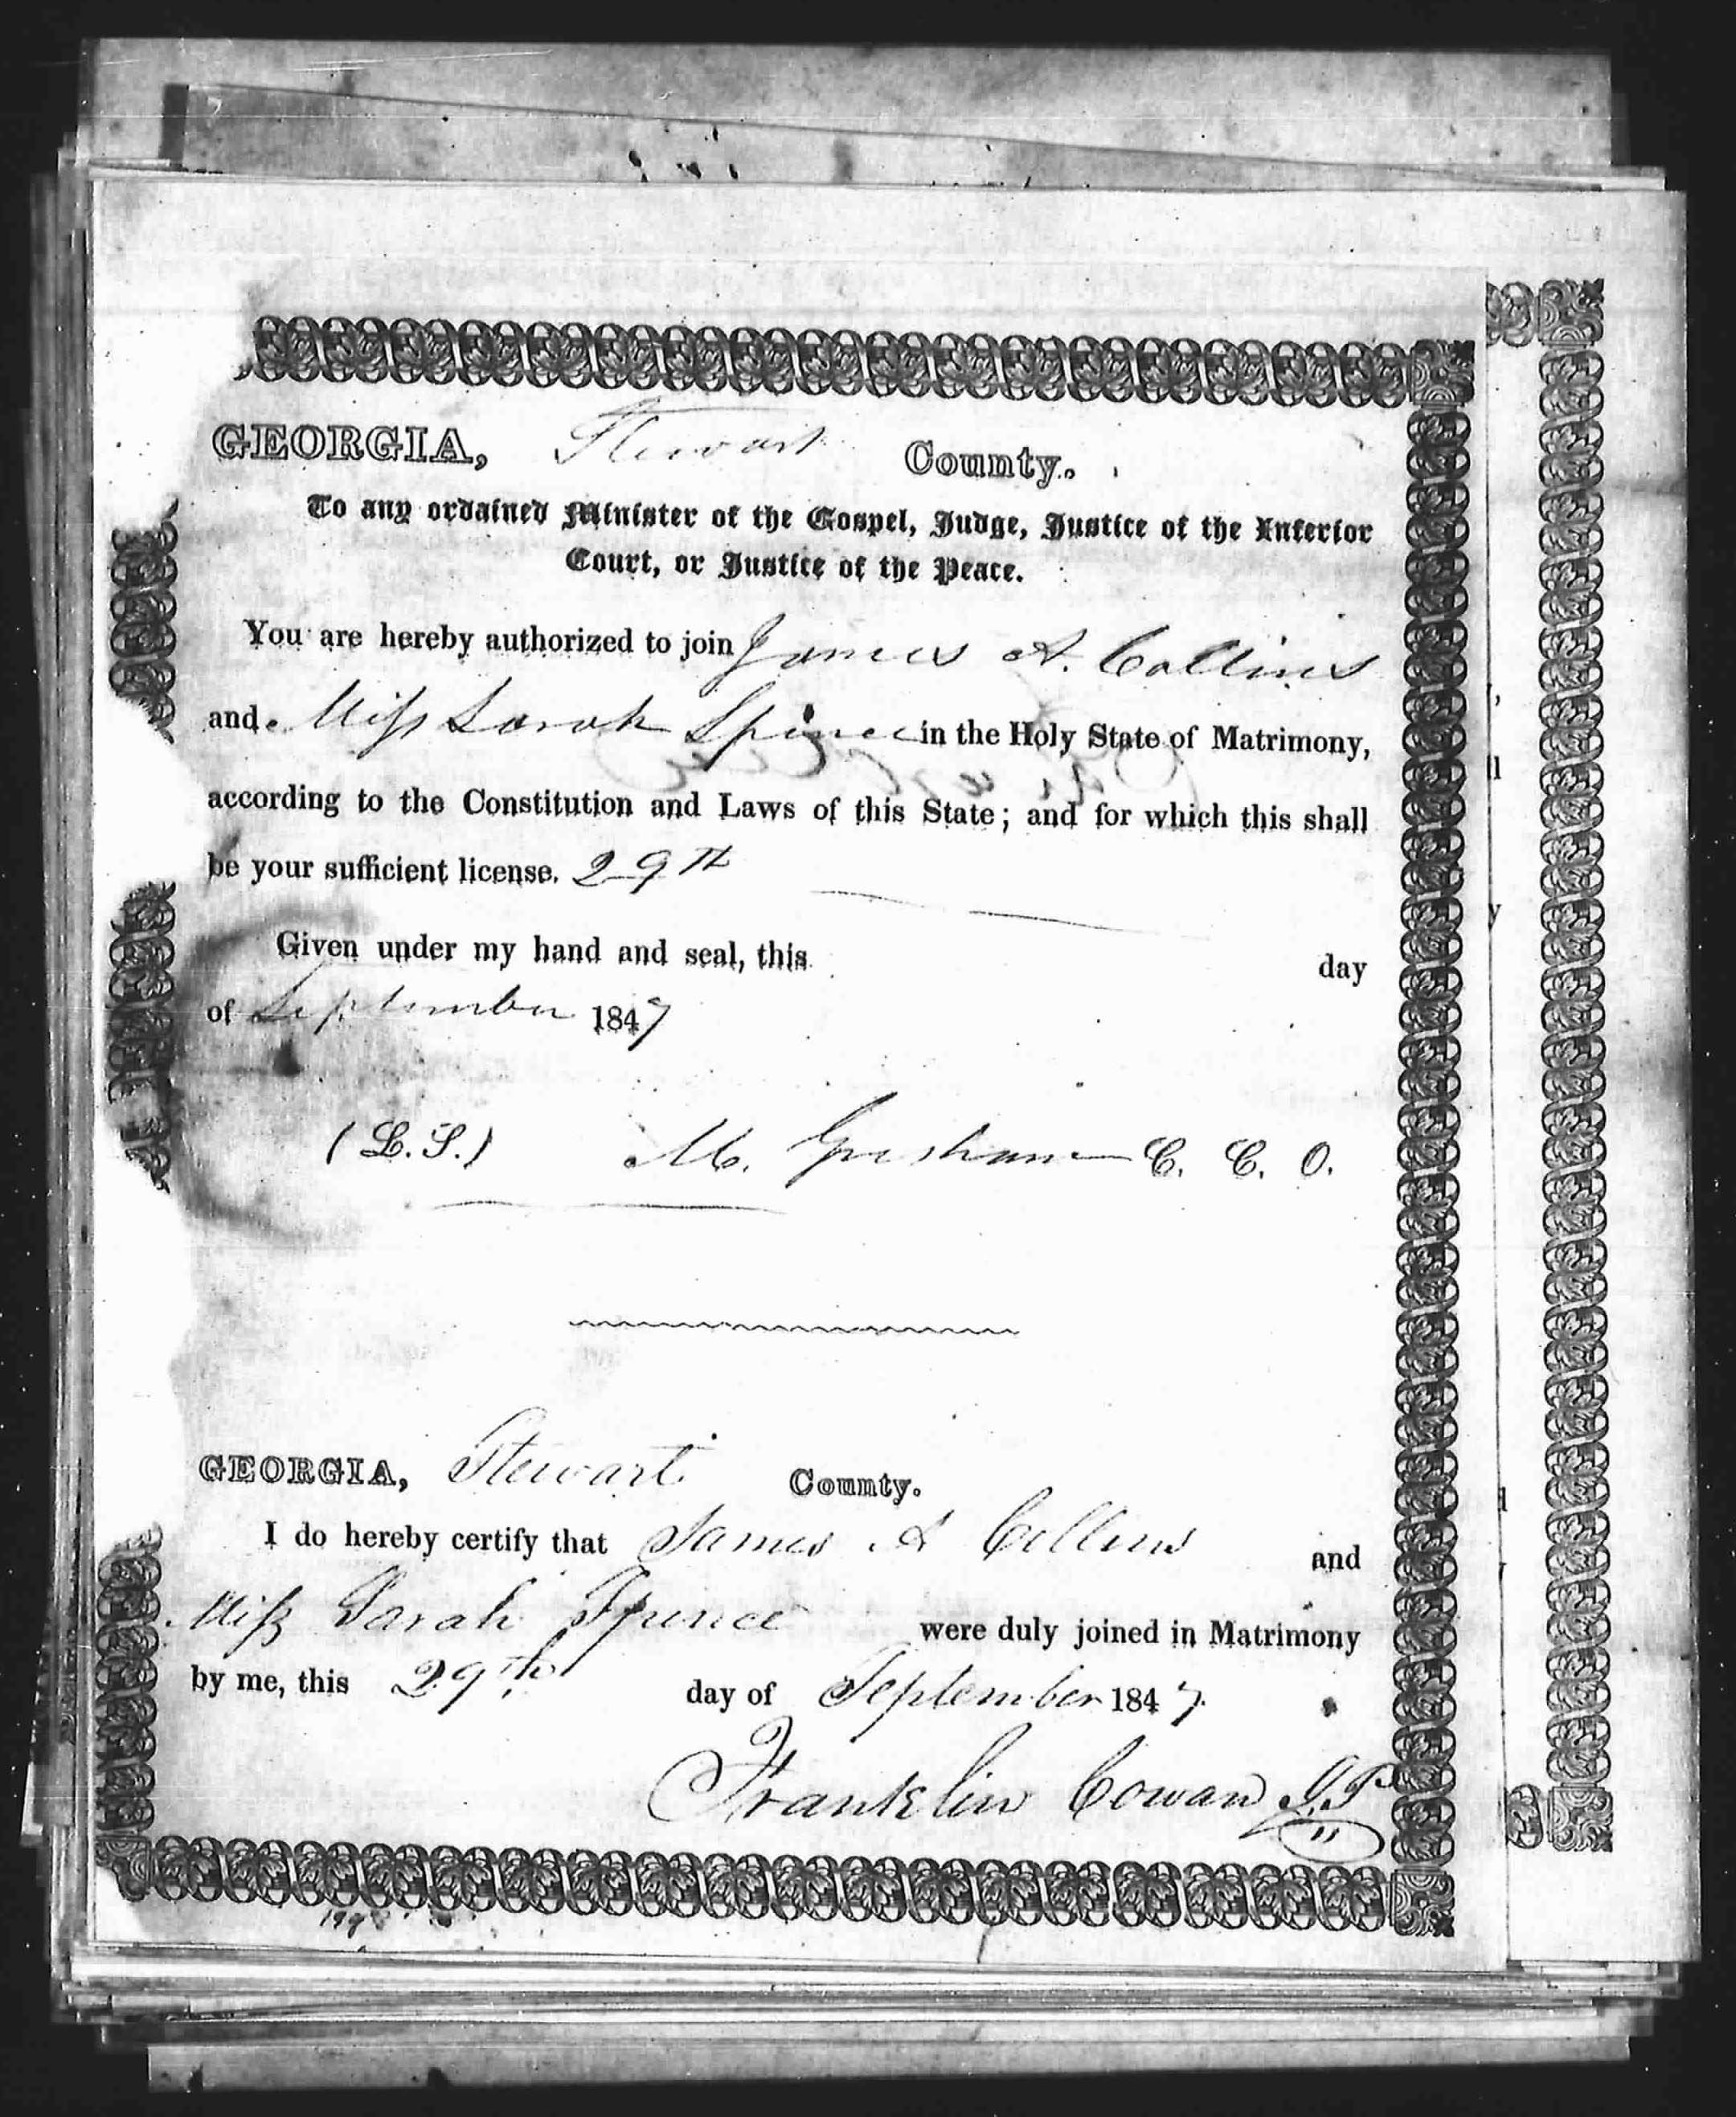 GEORGIA, Stewart County.
To any ordained Minister of the Gospel, Judge, Justice of the Inferior
Court, or Justice of the Peace.
You are hereby authorized to join James A. Collins
and Miss Sarah Spence in the Holy State of Matrimony,
according to the Constitution and Laws of this State; and for which this shall
be your sufficient license. 29th
Given under my hand and seal, this day
of September 1847
(L.S.) M. Gresham C. C. O.
GEORGIA, Stewart County.
I do hereby certify that James A Collins and
Miss Sarah Spence were duly joined in Matrimony
by me, this 29th day of September 1847.
Franklin Cowan J.P.